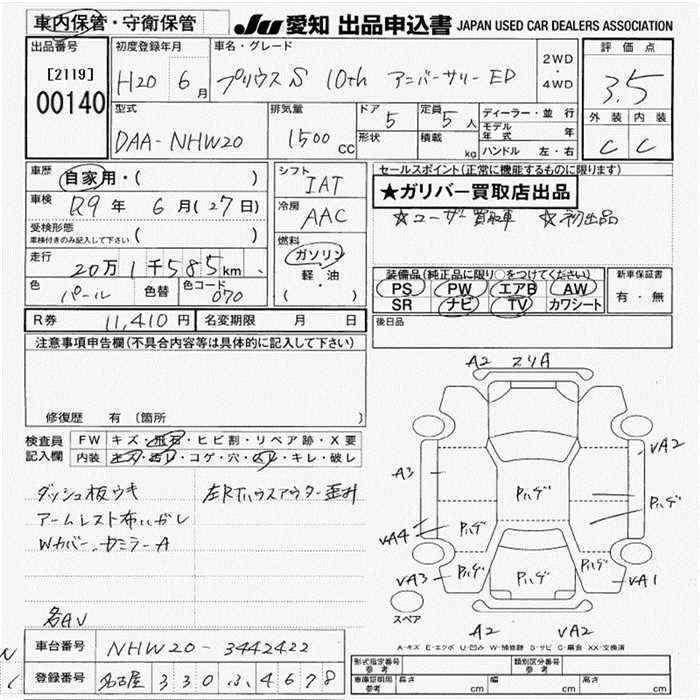 車内保管・守衛保管
JU 愛知 出品申込書 JAPAN USED CAR DEALERS ASSOCIATION
出品番号
[2119]
00140
初度登録年月
H20 6月
車名・グレード
プリウス S 10th アニバーサリー ED
2WD
・
4WD
評価点
3.5
外装 内装
C C
型式
DAA-NHW20
排気量
1500 CC
ドア 5
形状
定員 5人
積載 kg
ディーラー・並行
モデル年式 年
ハンドル 左・右
車歴 自家用・( )
車検 R9年 6月(27日)
受検形態
車検付きのみ記入して下さい ( )
走行
20万1千585km
色 パール 色替 色コード 070
シフト
IAT
冷房
AAC
燃料
ガソリン
軽・油
( )
セールスポイント(正常に機能するものに限ります)
★ガリバー買取店出品
☆ユーザー買取車 ☆初出品
装備品(純正品に限り○をつけてください)
PS PW エアB AW
SR ナビ TV カワシート
新車保証書
有・無
後日品
R券 11,410円 名変期限 月 日
注意事項申告欄(不具合内容等は具体的に記入して下さい)
修復歴 有 〔箇所 〕
検査員記入欄
FW キズ・飛石・ヒビ割・リペア跡・X要
内装 キズ・汚レ・コゲ・穴・スレ・キレ・破レ
ダッシュ板ウキ 左RTハウスアウター歪升
アームレスト布ハガレ
Wカバー、カミラーA
各AU
A2 スリA
UA2
A3
Pハゲ
Pハゲ
UA4 Pハゲ
UA3 Pハゲ Pハゲ Pハゲ UA1
スペア
A2 UA2
A-キズ E-エクボ U-凹み W-補修跡 S-サビ C-腐食 XX-交換済
車台番号 NHW20-3442422
登録番号 名古屋 330 ふ 4678
形式指定番号 参考
類別区分番号 参考
車庫証明用 参考 長さ cm 幅 cm 高さ cm